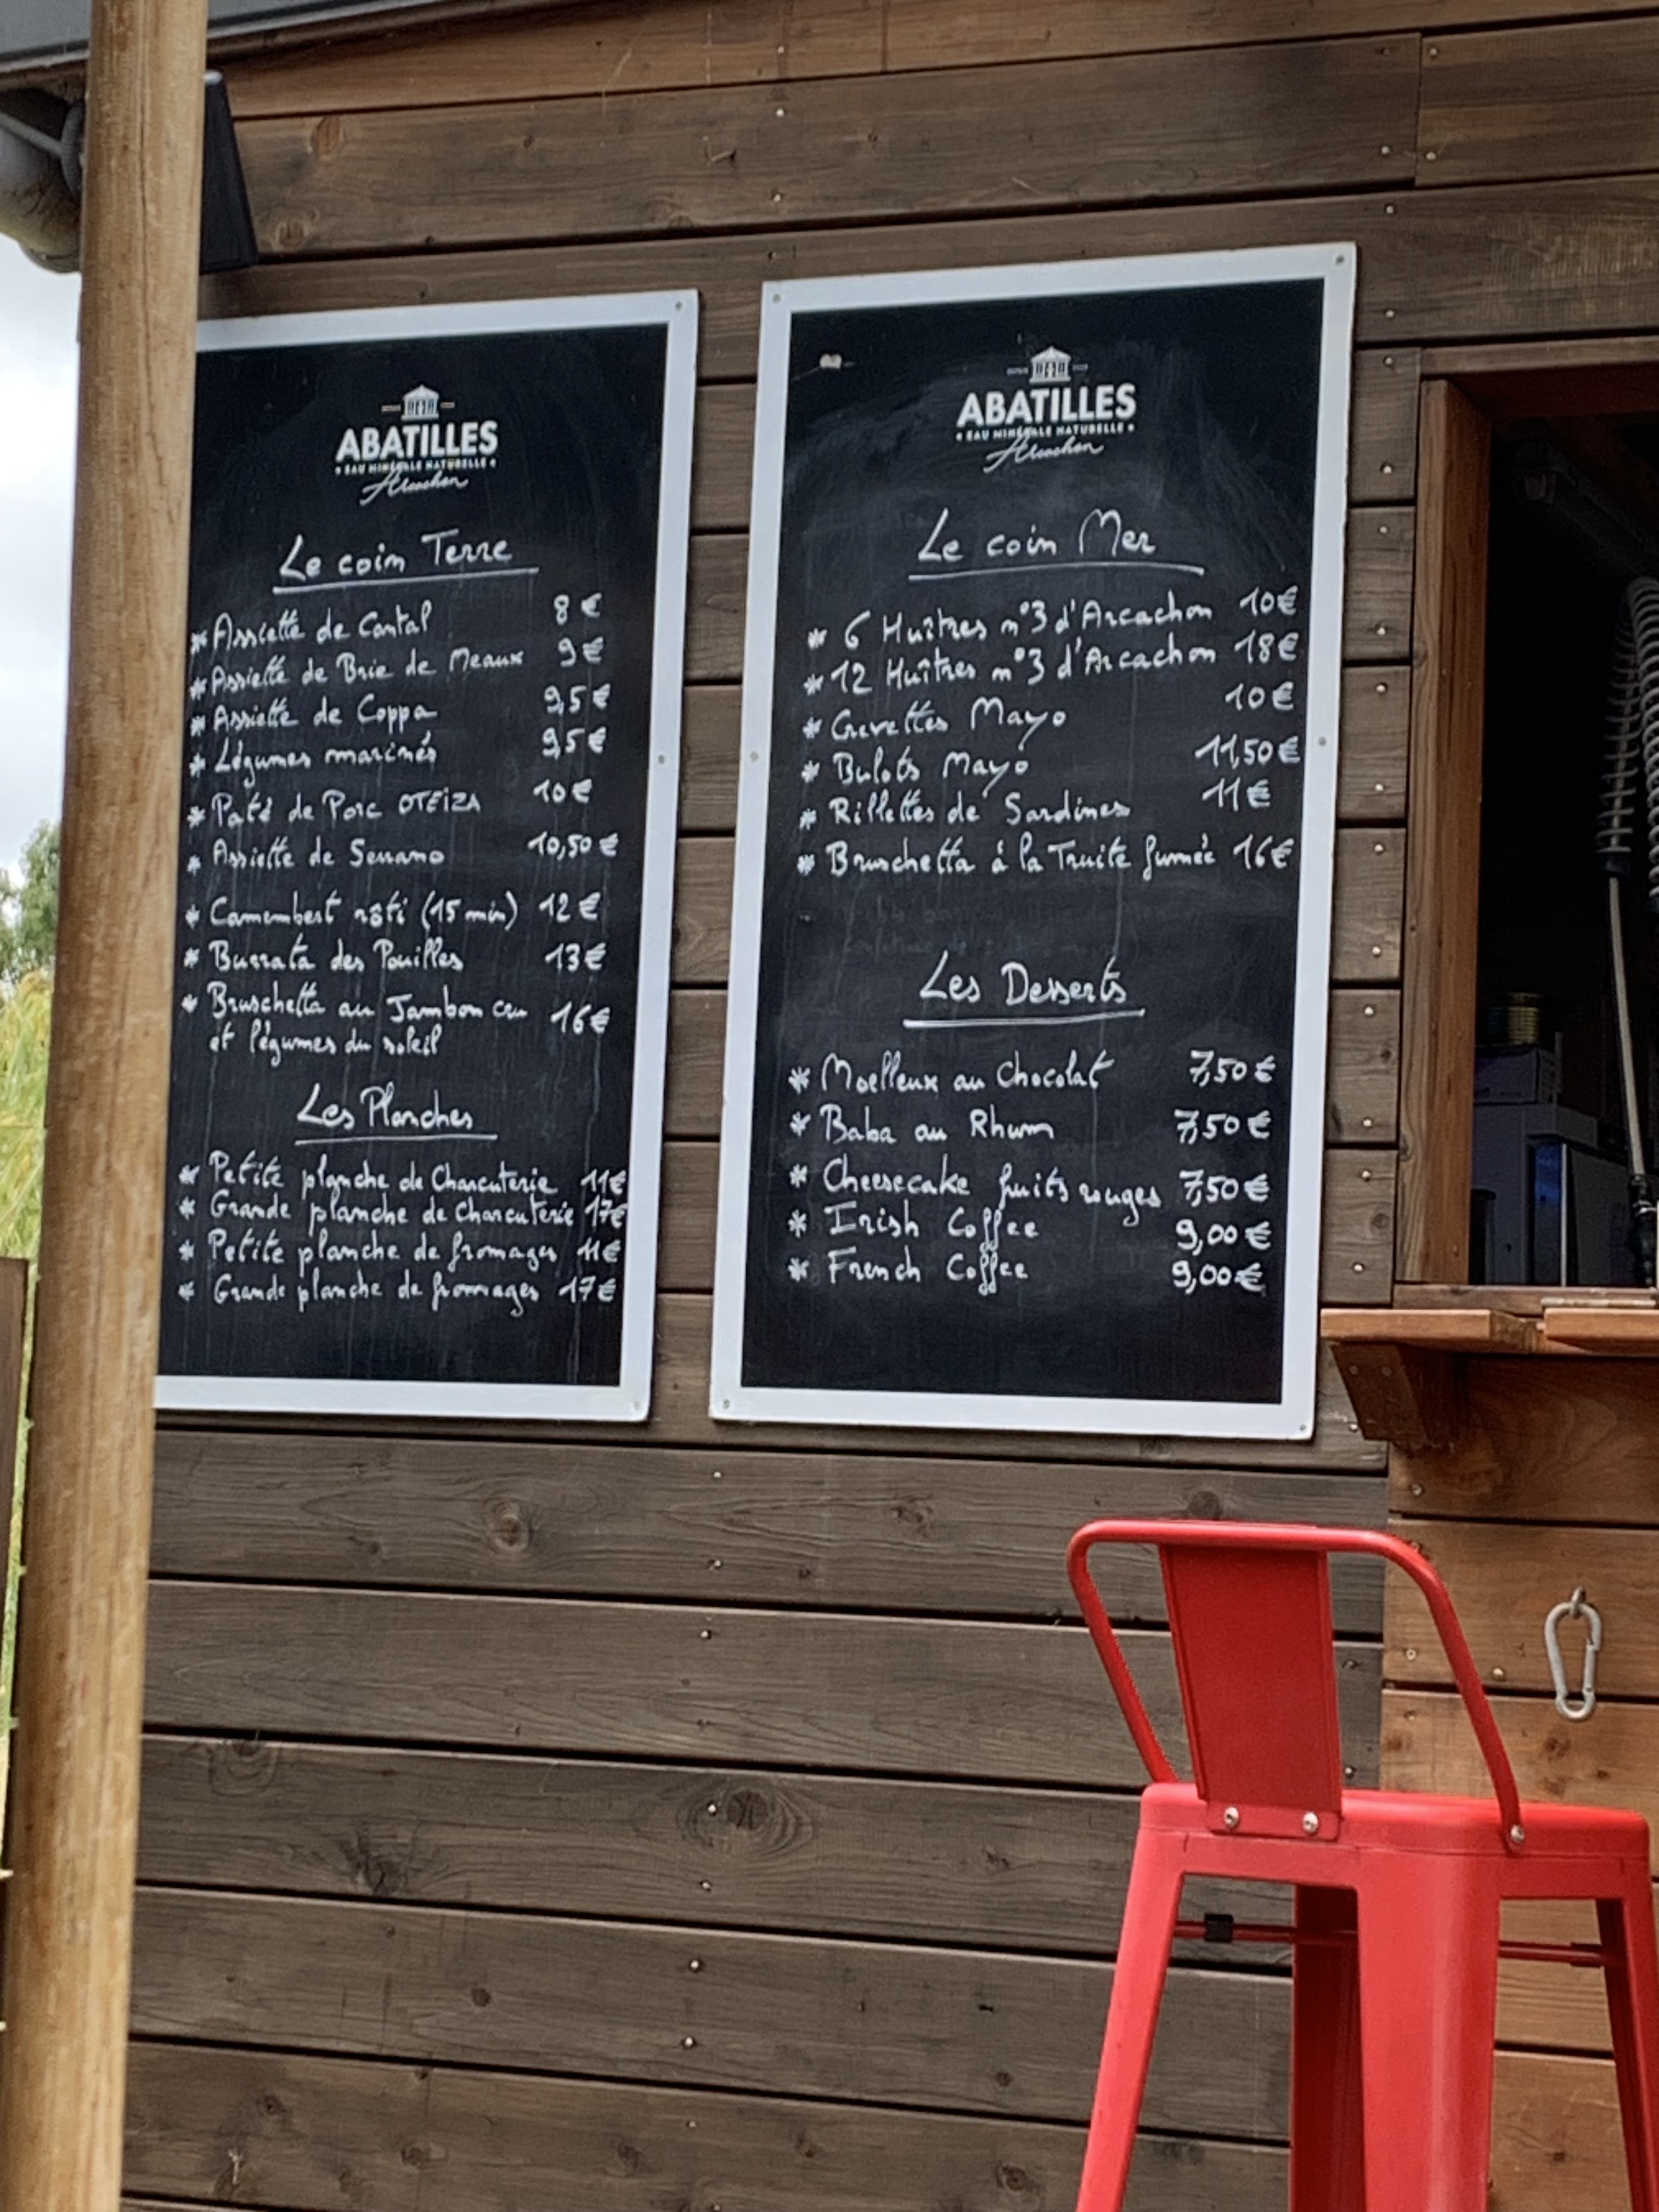 ABATILLES
EAU MINÉRALE NATURELLE
Arcachon
Le coin Terre
* Assiette de Cantal 8€
* Assiette de Brie de Meaux 9€
* Assiette de Coppa 9,5€
* Légumes marinés 9,5€
* Paté de Porc OTEIZA 10€
* Assiette de Serrano 10,50€
* Camembert rôti (15 min) 12€
* Burrata des Pouilles 13€
* Bruschetta au Jambon cru 16€
et légumes du soleil
Les Planches
* Petite planche de Charcuterie 11€
* Grande planche de Charcuterie 17€
* Petite planche de fromages 11€
* Grande planche de frommages 17€
DEPUIS
ABATILLES
EAU MINÉRALE NATURELLE
Arcachon
Le coin Mer
* 6 Huîtres n°3 d'Arcachon 10€
* 12 Huîtres n°3 d'Arcachon 18€
* Crevettes Mayo 10€
* Bulots Mayo 11,50€
* Rillettes de Sardines 11€
* Bruschetta á la Truite fumée 16€
Les Desserts
* Moelleux au Chocolat 7,50€
* Baba au Rhum 7,50€
* Cheesecake fruits rouges 7,50€
* Irish Coffee 9,00€
* French Coffee 9,00€